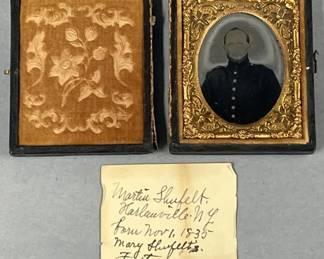 Martin Shufelt.
Harlanville. N.Y
born Nov 1. 1835
Mary Shufelt's